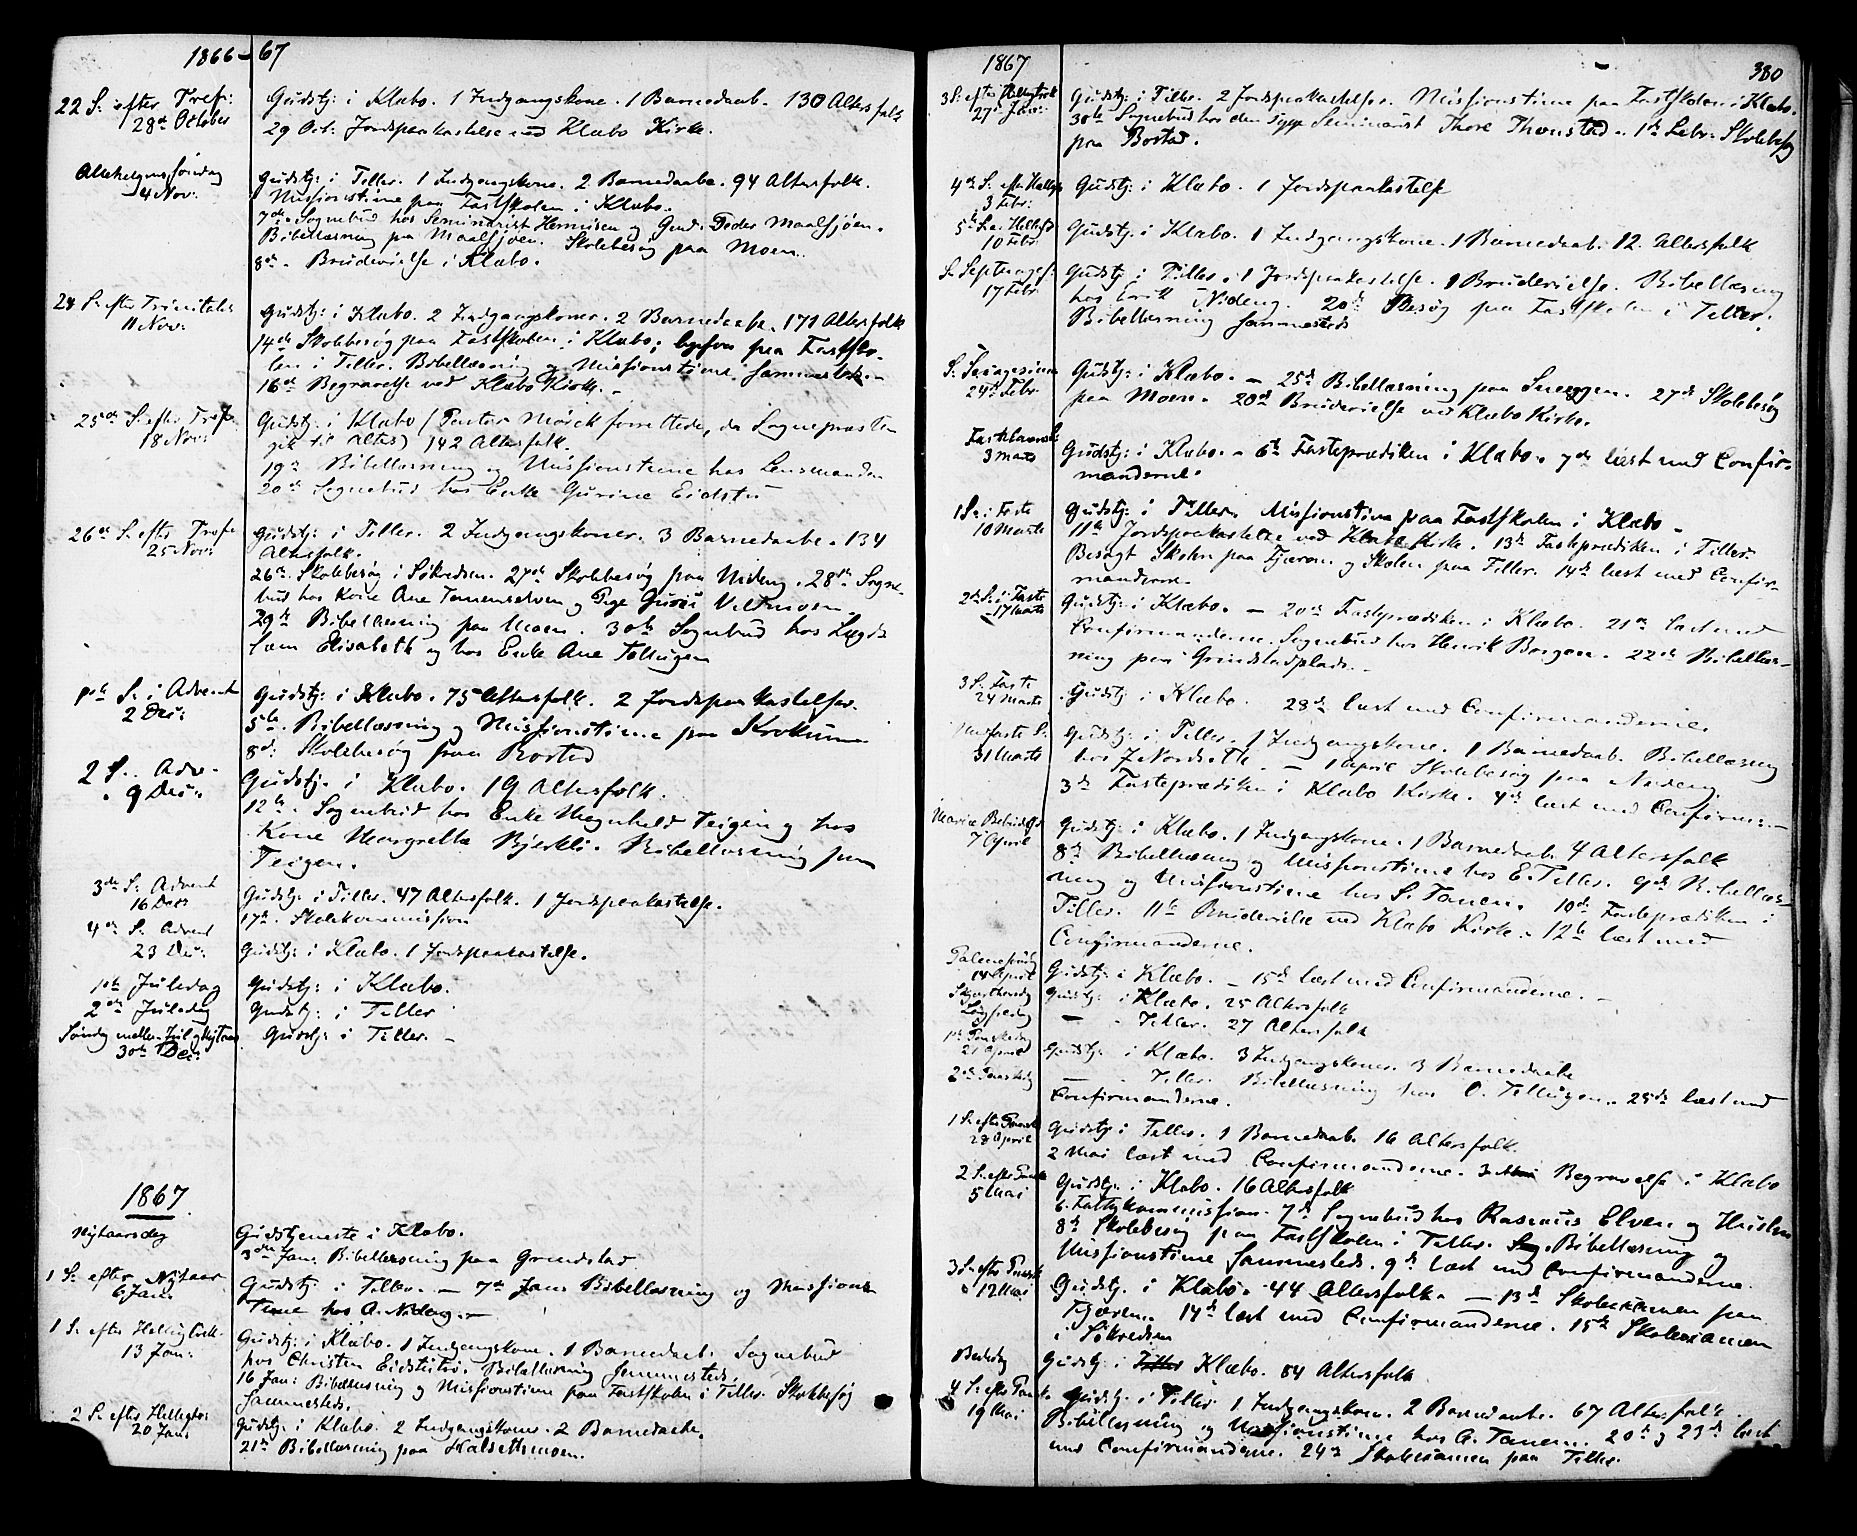 1866-67
22 S: efter Tref:
28de October
Gudstj: i Klæbo. 1 Indgangskone. 1 Barnedaab. 130 Altersfolk
29 Oct: Jordpaakastelse ved Klæbo Kirke.
Allehelgens søndag
4 Nov:
Gudstj: i Tiller. 1 Indgangskone. 2 Barnedaabe. 94 Altersfolk.
Missionstime paa Fastskolen i Klæbo.
7de. Sognebud hos Seminarist Hemnisen og Gmd. Peder Maalsjøen.
Bibellæsning paa Maalsjøen. Skolebesøg paa Moen.
8de. Brudevielse i Klæbo.
24 S: efter Trinitatis
11 Nov:
Gudstj: i Klæbo. 2 Indgangskoner. 2 Barnedaabe. 171 Altersfolk
14de Skolebesøg paa Fastskolen i Klæbo; paa Fastsko-
len i Tiller. Bibellæsning og Missionstime sammesteds.
16de Begravelse ved Klæbo Kirke.
25de S: efter Tref:
18 Nov:
Gudstj: i Klæbo (Pastor Mørck forrettede, da Sognepræsten
gik til Alters) 142 Altersfolk.
19de Bibellæsning og Missionstime hos Lensmanden
20de Sognebud hos Enke Gurine Eidstu
26de S: efter Tref:
25 Nov:
Gudstj: i Tiller. 2 Indgangskoner. 3 Barnedaabe. 134
Altersfolk.
26de. Skolebesøg i Søkredsen. 27de Skolebesøg paa Nideng. 28de Sogne-
bud hos Kone Ane Tanemselven og Pige Guroe
29de Bibellæsning paa Moen. 30te Sognebud hos Lægds
lem Elisabeth og hos Enke Ane Tellugen
1ste S: i Advent
2 Dec:
Gudstj: i Klæbo. 75 Altersfolk. 2 Jordpaakastelser.
5te. Bibellæsning og Missionstime paa Krokum
8de Skolebesøg paa Rostad
2 S. Adv.
9 Dec:
Gudstj. i Klæbo. 19 Altersfolk.
12te. Sognebud hos Enke Magnhild Teigen og hos
Kone Margrethe Bjerkli. Bibellæsning paa
Teigen.
3de S: Advent
16 Decr
Gudstj: i Tiller. 47 Altersfolk. 1 Jordpaakastelse.
17de. Skolekommission
4de S: Advent
23 Dec:
Gudstj: i Klæbo. 1 Jordpaakastelse.
1ste Juledag
Gudstj: i Klæbo.
2den Juledag
Gudstj: i Tiller
Søndag mellem Jul og Nytaar
30te Dec:
Gudstj: i Tiller.
1867
Nytaarsdag
Gudstjeneste i Klæbo.
3die Jan: Bibellæsning paa Grindstad
1 S: efter Nytaar
6 Jan:
Gudstj: i Tiller. - 7de Jan: Bibellæsning og Missions
time hos A. Nideng.
1 S: efter Hellig trek.
13 Jan:
Gudstj: i Klæbo. 1 Indgangskone. 1 Barnedaab. Sognebud
hos Christen Eidstutrø. Bibellæsning sammesteds.
16 Jan: Bibellæsning og Missionstime paa Fastskolen i Tiller. Skolebesøg
sammesteds.
2 S: efter Helligtre:
20 Jan:
Gudstj: i Klæbo. 2 Indgangskoner. 2 Barnedaabe.
21de Bibellæsning paa Halsetmoen.
1867
380
3 S. efter Helligtrek
27de Jan:
Gudstj: i Tiller. 2 Jordpaakastelser. Missionstime paa Fastskolen i Klæbo.
30te Sognebud hos den syge Seminarist Thore Thonstad. 1ste Febr: Skolebesøg
paa Rostad.
4de S. efter Helligtr
3 Febr:
Gudstj: i Klæbo. 1 Jordpaakastelse
5te S. e. Helligtr
10 Febr
Gudstj: i Klæbo. 1 Indgangskone. 1 Barnedaab. 12 Altersfolk
S. Septuages:
17 Febr
Gudstj: i Tiller. 1 Jordpaakastelse. 1 Brudevielse. Bibellæsning
hos Erik Nideng. 20de Besøg paa Fastskolen i Tiller.
Bibellæsning sammesteds
S. Sexagesima
24de Febr
Gudstj: i Klæbo. - 25de Bibellæsning paa Sneeggen. 27de Skolebesøg
paa Moen. 28de Brudevielse ved Klæbo Kirke.
Fastelavns S:
3 Marts
Gudstj: i Klæbo. - 6te Fasteprædiken i Klæbo. 7de læst med Confir-
manderne.
1 S. i Faste
10 Marts
Gudstj: i Tiller. Missionstime paa Fastskolen i Klæbo.
11te Jordpaakastelse ved Klæbo Kirke. 13de Fasteprædiken i Tiller.
Besøgt Skolen paa Tjærem og Skolen paa Tiller. 14de læst med Confir-
manderne.
2de S. i Faste
17 Marts
Gudstj: i Klæbo. - 20de Fasteprædiken i Klæbo. 21de læst med
Confirmanderne. Sognebud hos Henrik Borgen. 22de Bibellæs-
ning paa Grindstadplads.
3 S. Faste
24 Marts
Gudstj: i Klæbo. 28de læst med Confirmanderne.
Midfaste S:
31 Marts
Gudstj: i Tiller. 1 Indgangskone. 1 Barnedaab. Bibellæsning
hos J Nordseth. - 1 April Skolebesøg paa Nideng.
3de Fasteprædiken i Klæbo Kirke. 4de læst med Confirm:
Mariæ Bebudelse
7 April
Gudstj: i Klæbo. 1 Indgangskone. 1 Barnedaab. 4 Altersfolk
8de Bibellæsning og Missionstime hos E. Tiller. 9de Bibellæs-
ning og Missionstime hos S. Tanem. 10de Fasteprædiken i
Tiller. 11te Brudevielse ved Klæbo Kirke. 12te læst med
Confirmanderne.
Palmesøndag
14 April
Gudstj: i Klæbo. - 15de læst med Confirmanderne.
Skjærthorsdag
Gudstj: i Klæbo. 25 Altersfolk
Langfredag
— - Tiller. 27 Altersfolk
1ste Paaskedag
21 April
Gudstj: i Klæbo. 3 Indgangskoner. 3 Barnedaabe
2den Paaskedag
— Tiller. Bibellæsning hos O. Tellugen. 25de læst med
Confirmanderne.
1 S: efter Paaske
28 April
Gudstj: i Tiller. 1 Barnedaab. 16 Altersfolk.
2 Mai læst med Confirmanderne. 3 Mai Begravelse i Klæbo
2 S. efter Paaske
5 Mai
Gudstj: i Klæbo. 16 Altersfolk
6. Fattigkommission. 7de Sognebud hos Rasmus Elven og
8de Skolebesøg paa Fastskolen i Tiller. Bibellæsning og
Missionstime sammesteds. 9de læst med Confirmanderne
3 S. efter Paaske
12 Mai
Gudstj. i Klæbo. 44 Altersfolk. - 13de Skoleexamen paa
Tjærem. 14de læst med Confirmanderne. 15de Skoleexamen
i Søkredsen
Bededag
Gudstj: i Tiller Klæbo. 84 Altersfolk
4 S. efter Paaske
19 Mai
Gudstj. i Tiller 1 Indgangskone. 2 Barnedaabe. 67 Altersfolk
Bibellæsning og Missionstime hos A. Tanem. 20de og 23de læst
med Confirmanderne. 24de Skoleexamen paa Tiller.